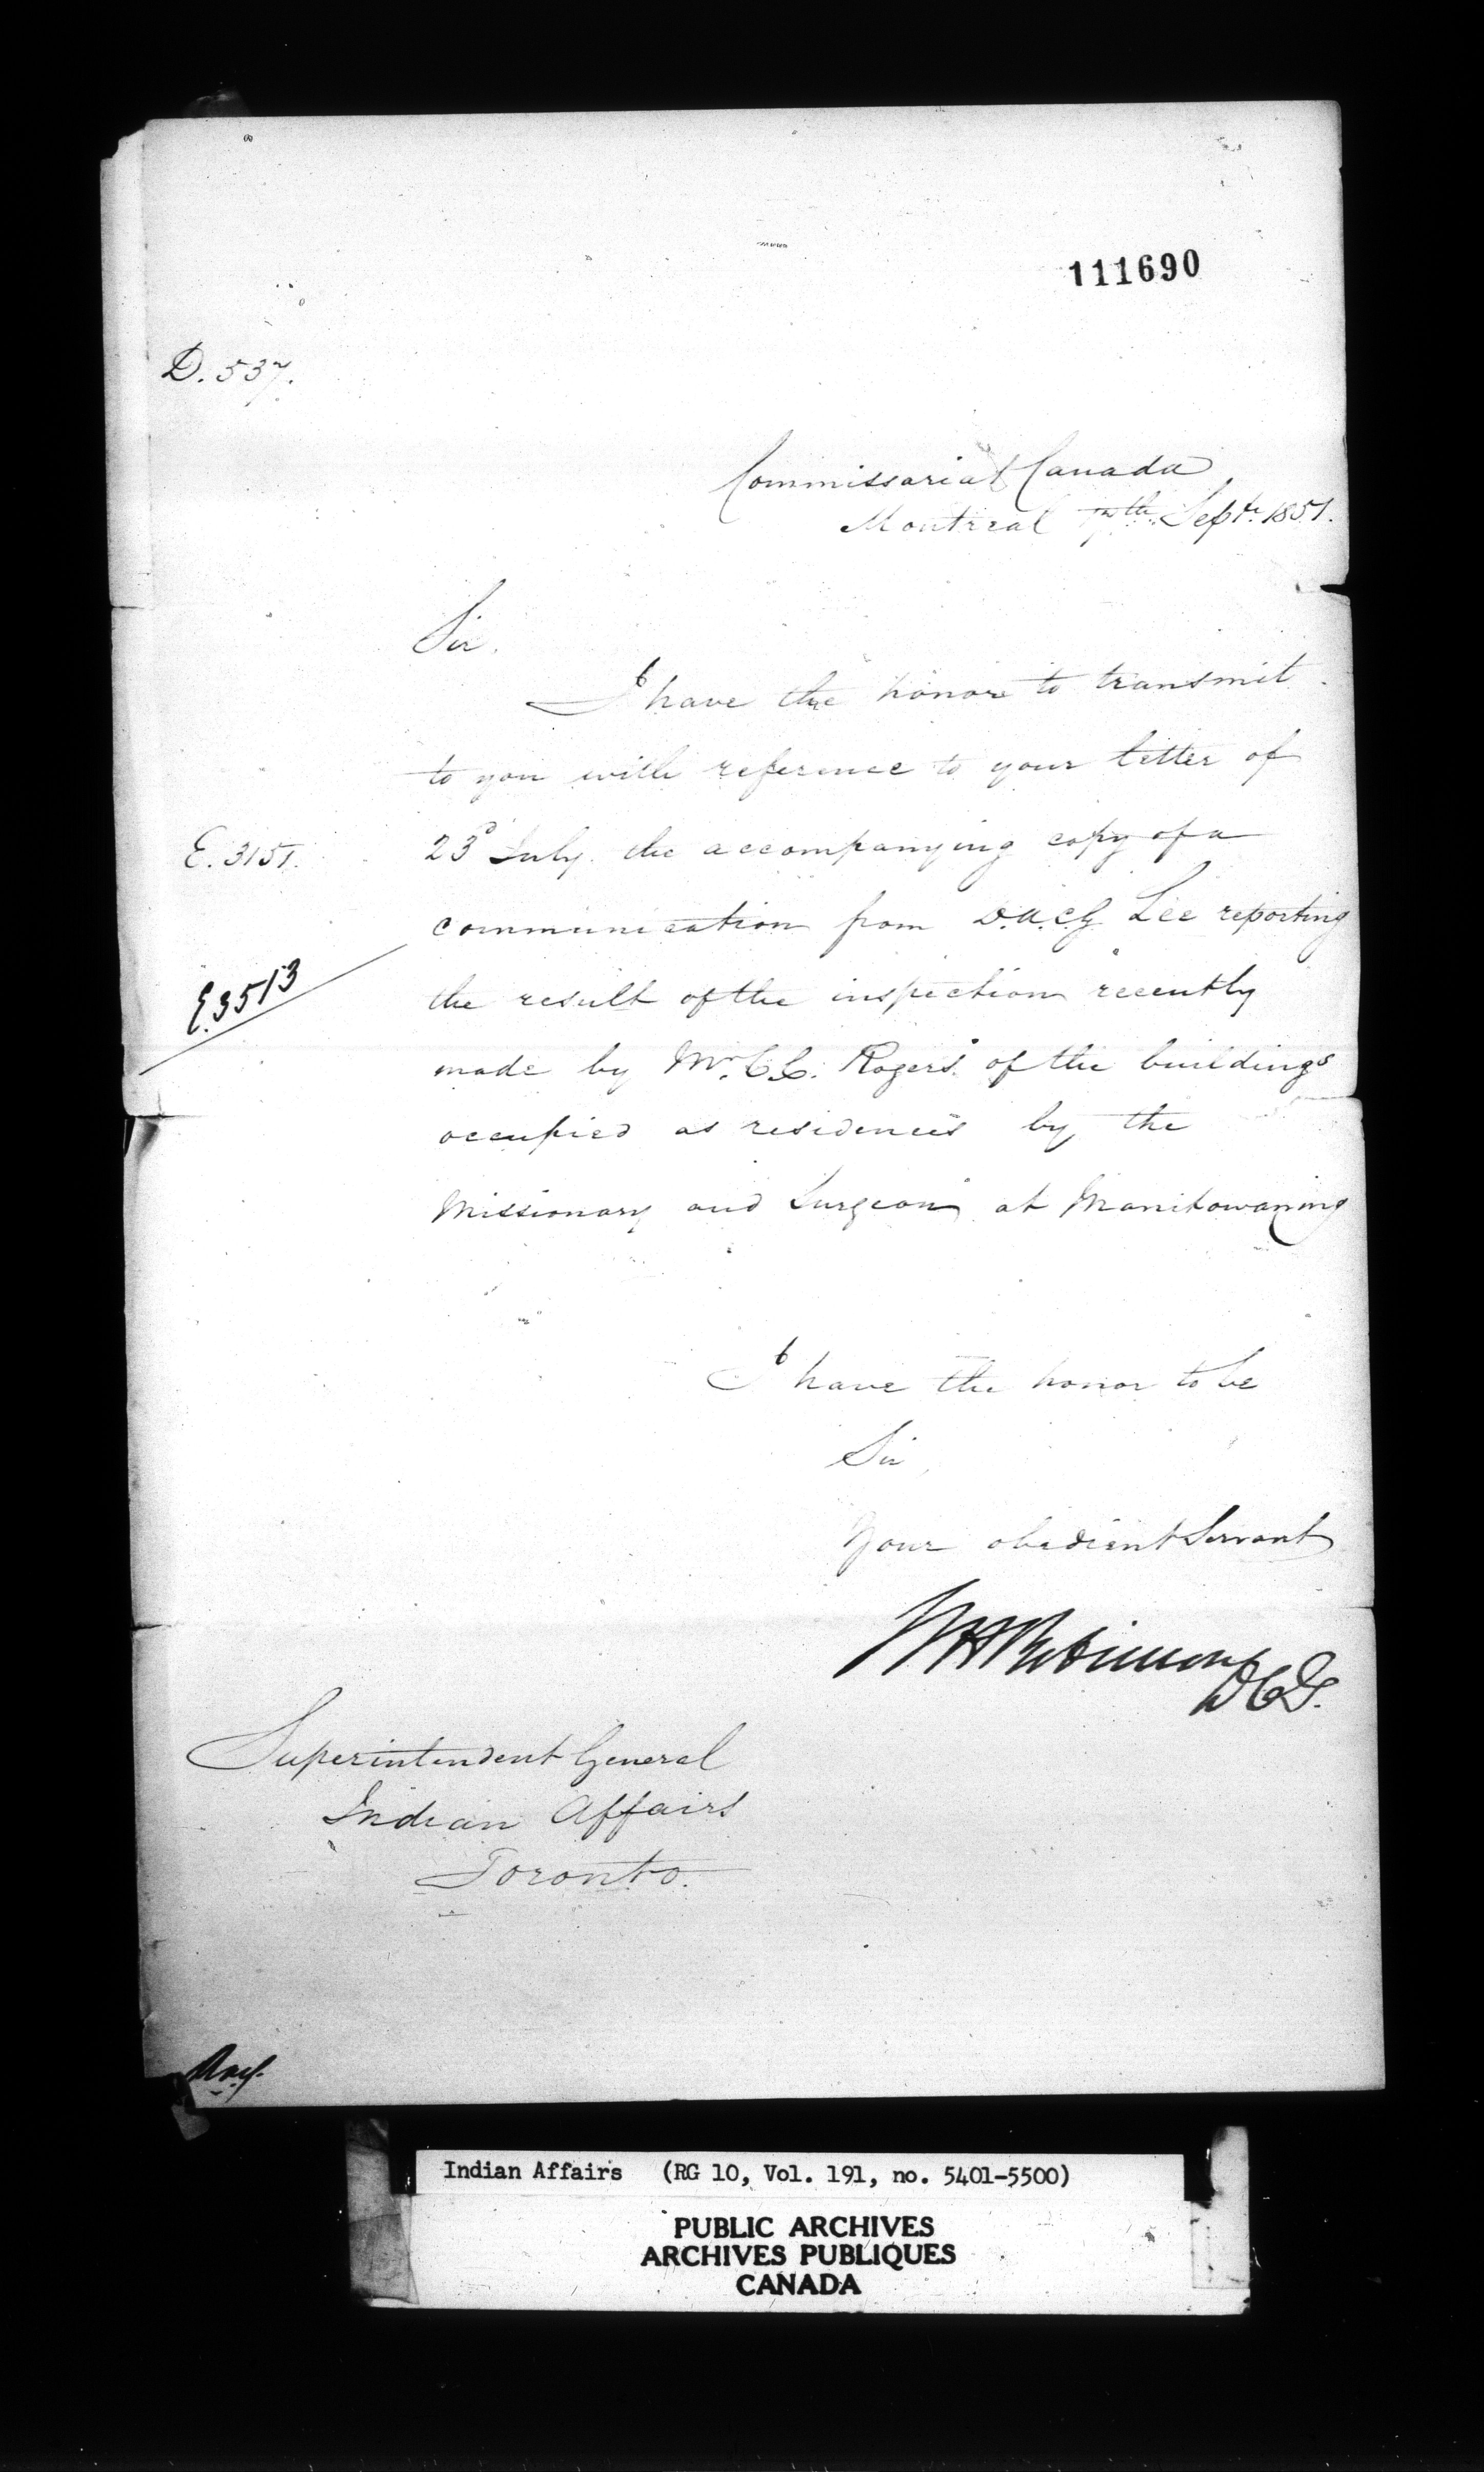 111690
D. 537.
Commissariat Canada
Montreal 7th Septr. 1851.
Sir,
I have the honor to transmit
to you with reference to your letter of
E. 3151.
23d July the accompanying copy of a
communication from D.A.C.G. Lee reporting
E.3513
the result of the inspection recently
made by Mr. C.C. Rogers of the buildings
occupied as residences by the
Missionary and Surgeon at Manitowaning
I have the honor to be
Sir,
Your obedient Servant
WH Robinson
DCG.
Superintendent General
Indian Affairs
Toronto.
Indian Affairs (RG 10, Vol. 191, no. 5401-5500)
PUBLIC ARCHIVES
ARCHIVES PUBLIQUES
CANADA